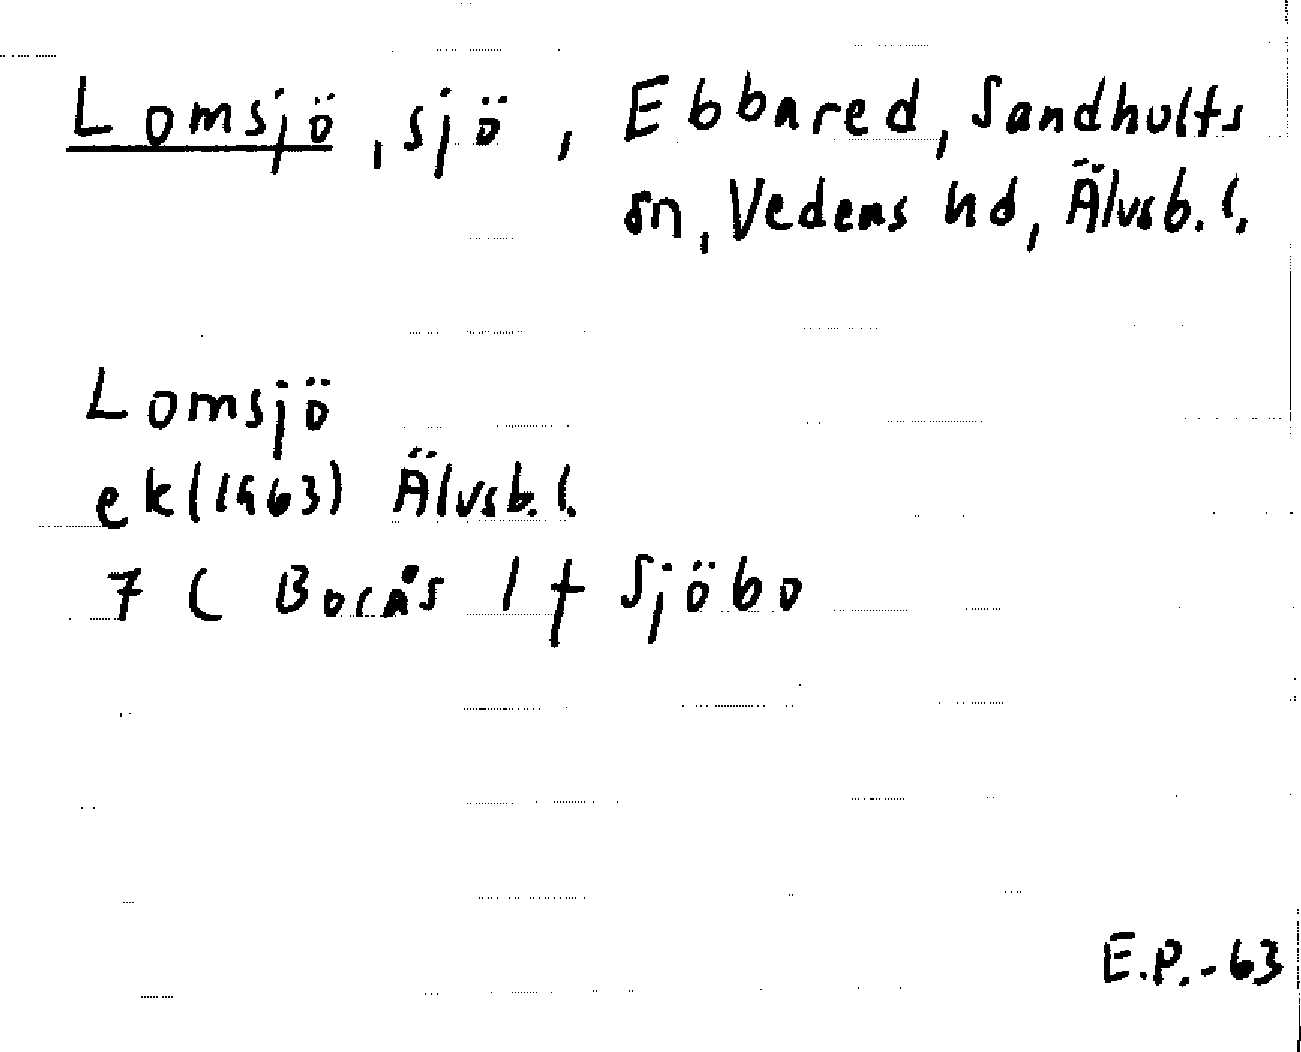 Lomsjö, sjö, Ebbared, Sandhults
sn, Vedens hd, Älvsb. l.
Lomsjö
ek (1963) Älvsb. l.
7 C Borås 1 f Sjöbo
E.P.-63